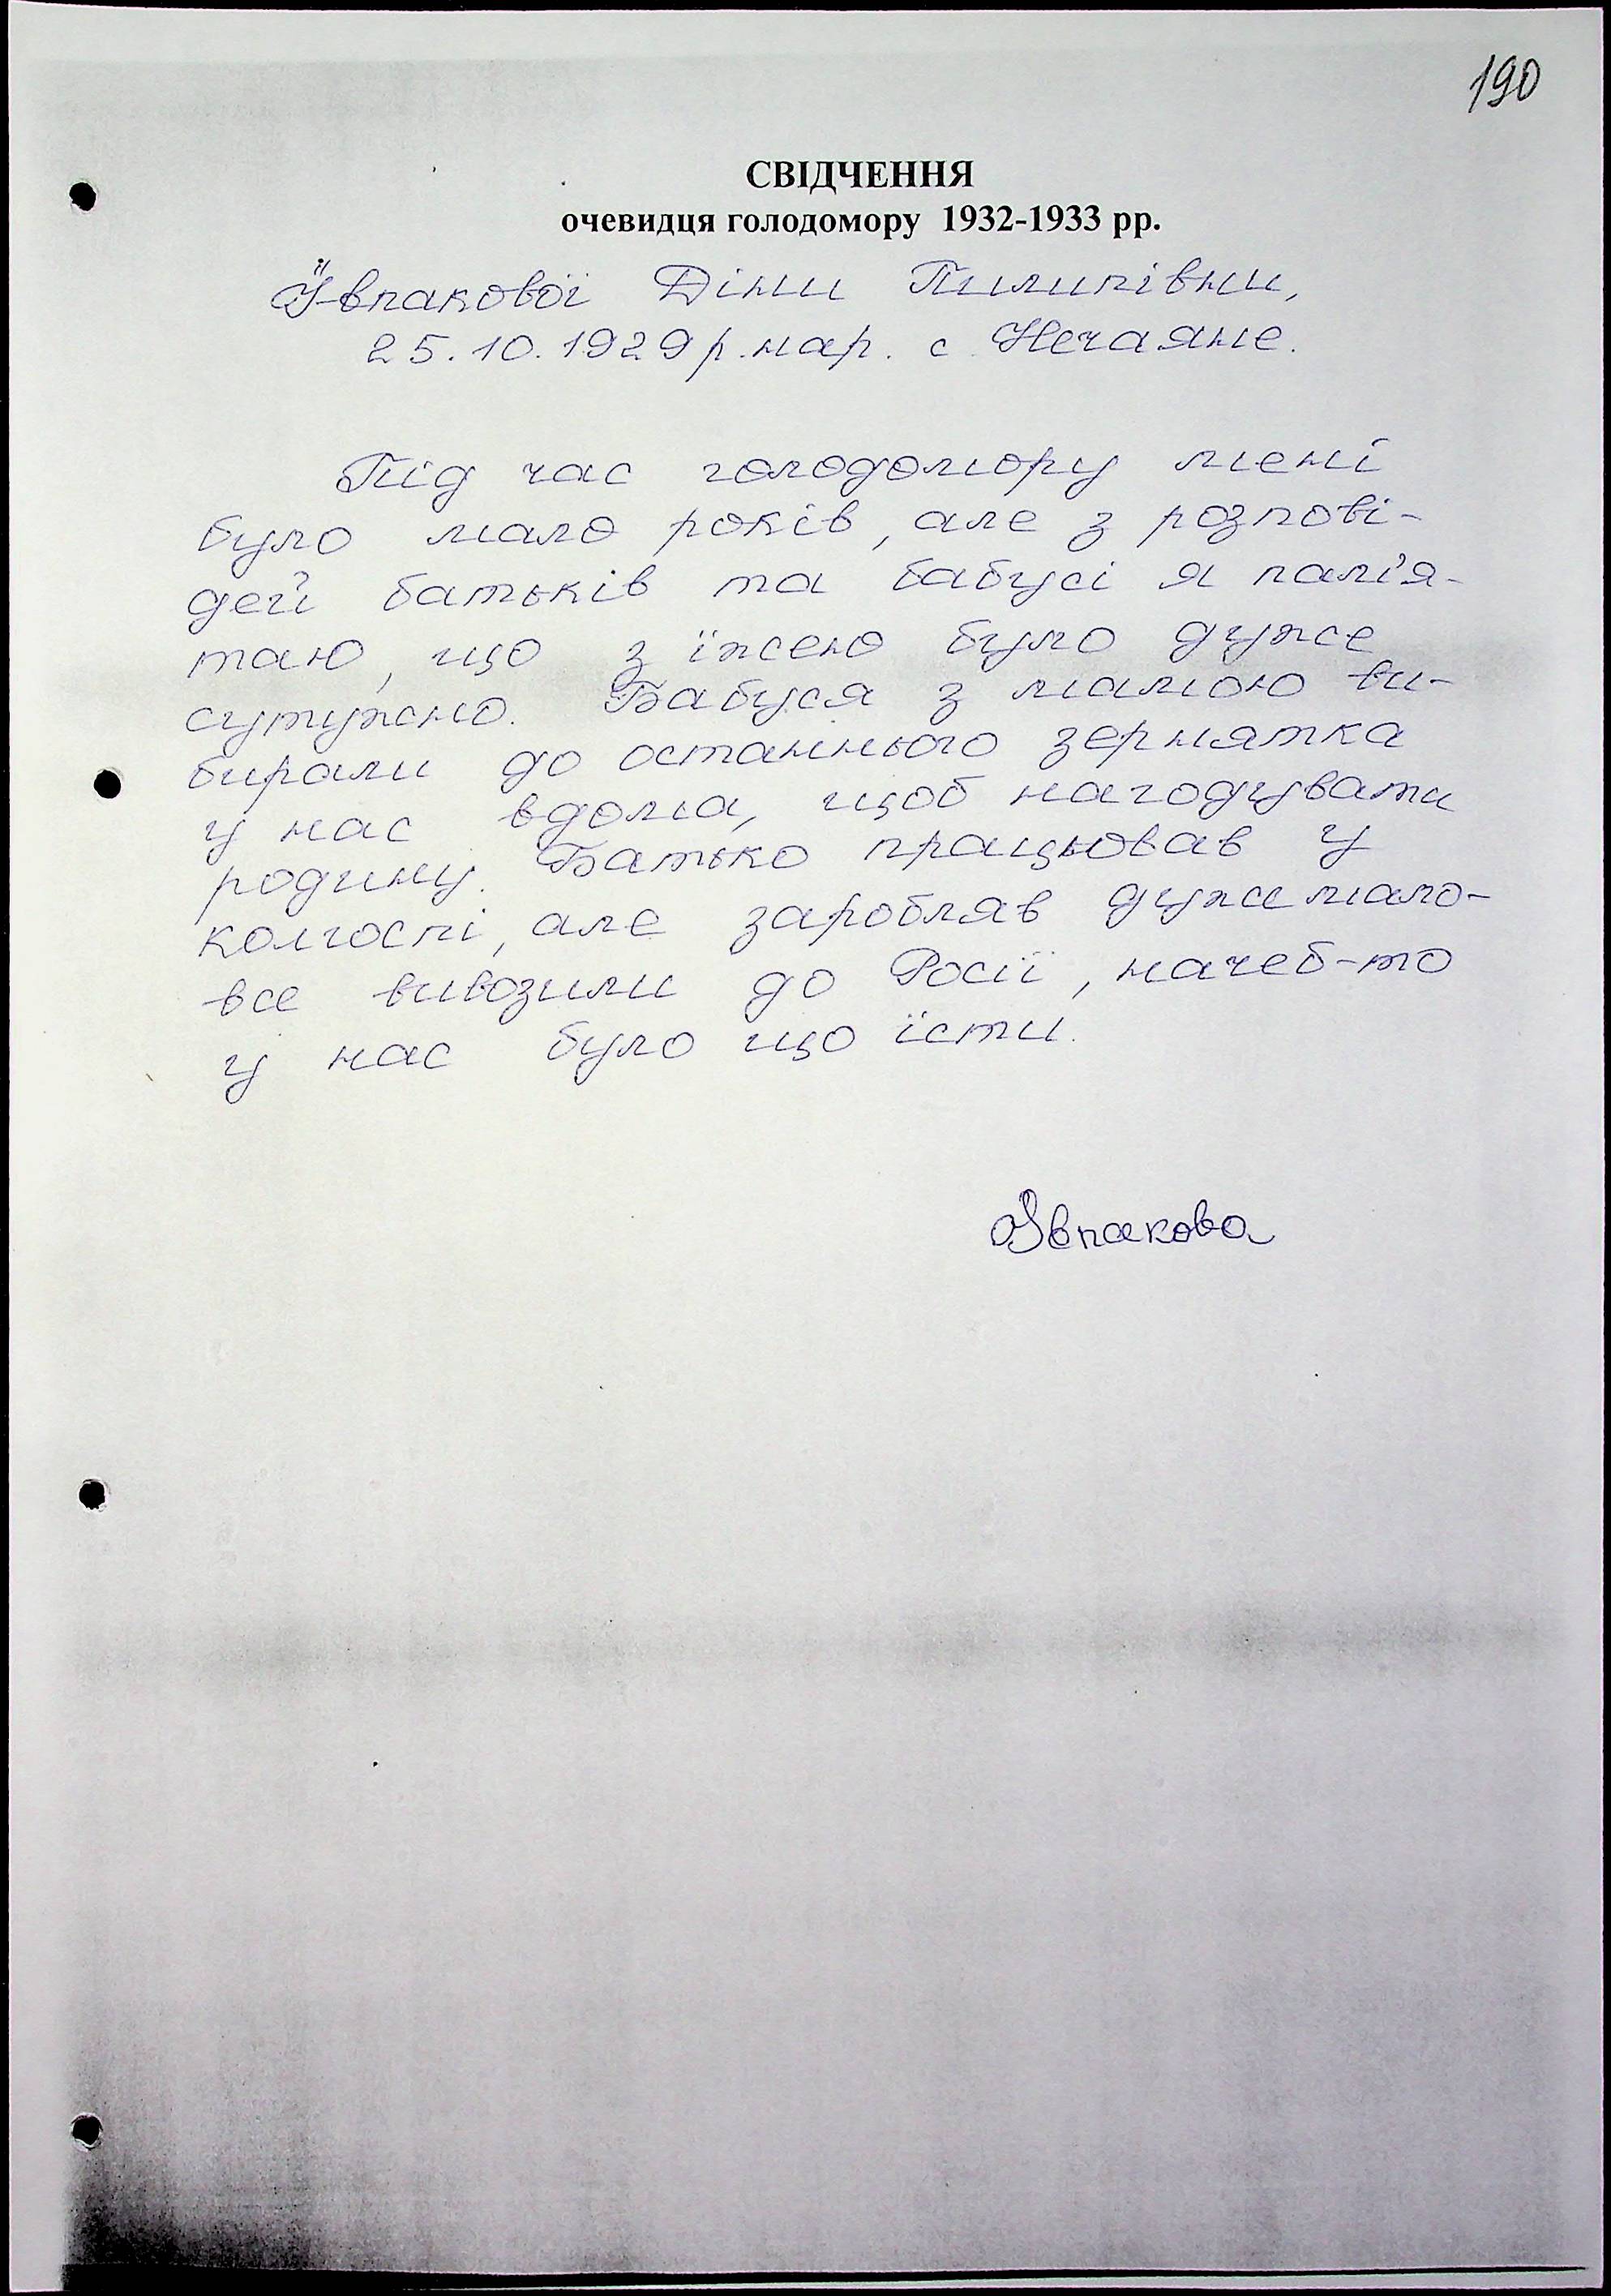 190
СВІДЧЕННЯ
очевидця голодомору 1932-1933 рр.
Ївпакової Діни Пилипівни,
25.10.1929 р. нар. с. Нечаяне.
Під час голодомору мені
було мало років, але з розпові-
дей батьків та бабусі я пам'я-
таю, що з їжею було дуже
сутужно. Бабуся з мамою ви-
бирали до останнього зернятка
у нас вдома, щоб нагодувати
родину. Батько працьовав у
колгоспі, але заробляв дуже мало-
все вивозили до Росії, начеб-то
у нас було що їсти.
Ївпакова